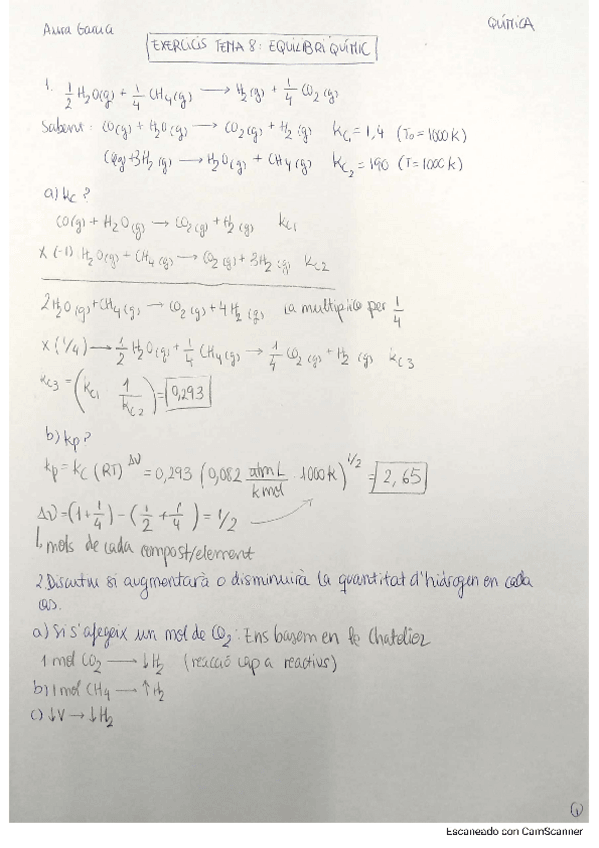 Aura Garcia
QUÍMICA
EXERCICIS TEMA 8: EQUILIBRI QUÍMIC
1. 1/2 H2O(g) + 1/4 CH4(g) → H2(g) + 1/4 CO2(g)
Sabent: CO(g) + H2O(g) → CO2(g) + H2(g) Kc1 = 1,4 (T0 = 1000K)
CO(g) + 3H2(g) → H2O(g) + CH4(g) Kc2 = 190 (T = 1000K)
a) Kc?
CO(g) + H2O(g) → CO2(g) + H2(g) Kc1
x (-1) H2O(g) + CH4(g) → CO2(g) + 3H2(g) Kc2
2H2O(g) + CH4(g) → CO2(g) + 4H2(g) la multiplico per 1/4
x (1/4) → 1/2 H2O(g) + 1/4 CH4(g) → 1/4 CO2(g) + H2(g) Kc3
Kc3 = (Kc1 1/Kc2) = 0,293
b) Kp?
Kp = Kc (RT)^Δν = 0,293 (0,082 atm L / K mol · 1000K)^1/2 = 2,65
Δν = (1 + 1/4) - (1/2 + 1/4) = 1/2
↳ mols de cada compost/element
2. Discutiu si augmentarà o disminuirà la quantitat d'hidrogen en cada
cas.
a) Si s'afegeix un mol de CO2: Ens basem en le Chatelier
1 mol CO2 → ↓H2 (reacció cap a reactius)
b) 1 mol CH4 → ↑H2
c) ↓V → ↓H2
1
Escaneado con CamScanner